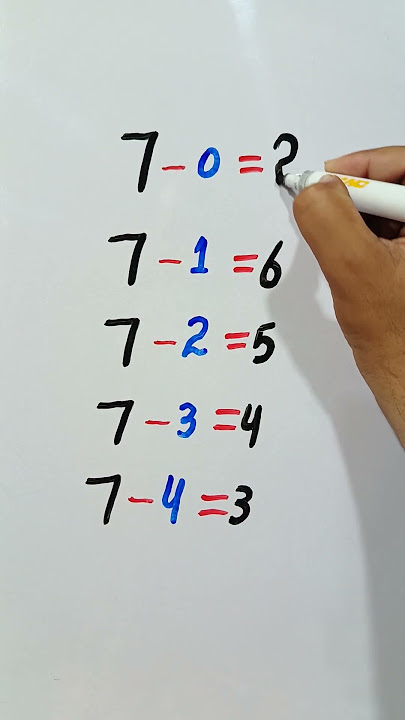 7-0=?
7-1=6
7-2=5
7-3=4
7-4=3